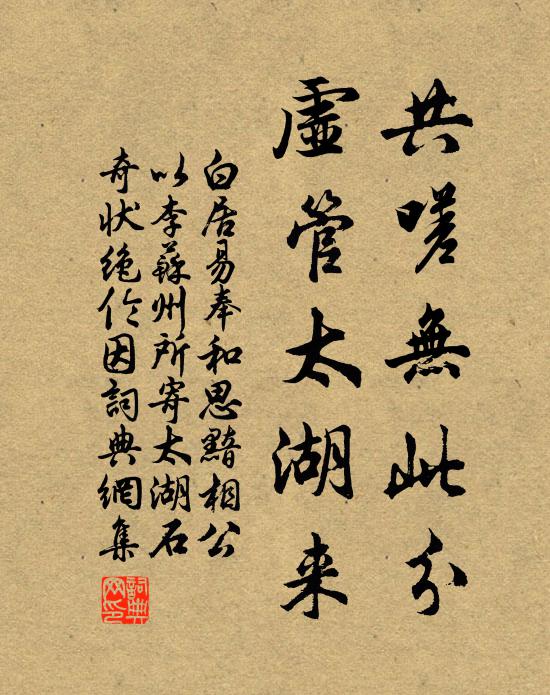 共嗟無此分
虛管太湖来
白居易奉和思黯相公
以李蘇州所寄太湖石
奇状絶伦因詞典網集
詞典网印